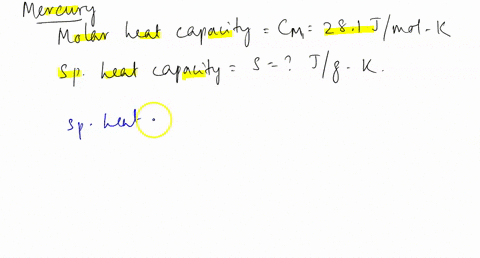 Mercury
Molar heat capacity = CM = 28.1 J/mol-K
Sp. heat capacity = S = ? J/g-K.
Sp. heat